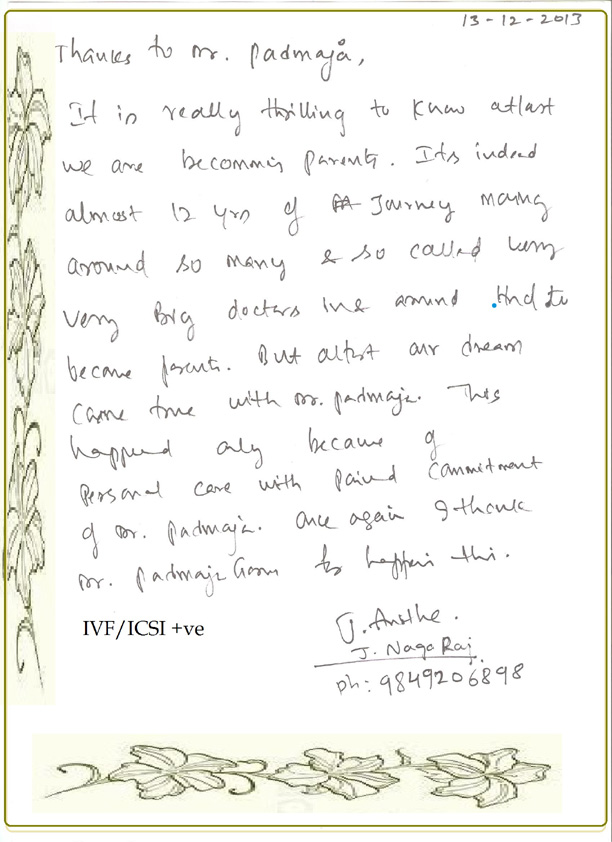 13-12-2013
Thanks to Dr. Padmaja,
It is really thrilling to know atlast
we are becomming parents. Its indeed
almost 12 yrs of Journey moving
around so many & so called very
very Big doctors in & around Hyd to
become parents. But atlast our dream
came true with Dr. Padmaja. This
happened only because of
Personal care with commitment
of Dr. Padmaja. Once again I thank
Dr. Padmaja to happen this.
IVF/ICSI +ve
J.
J. Naga Raj.
Ph: 9849206898